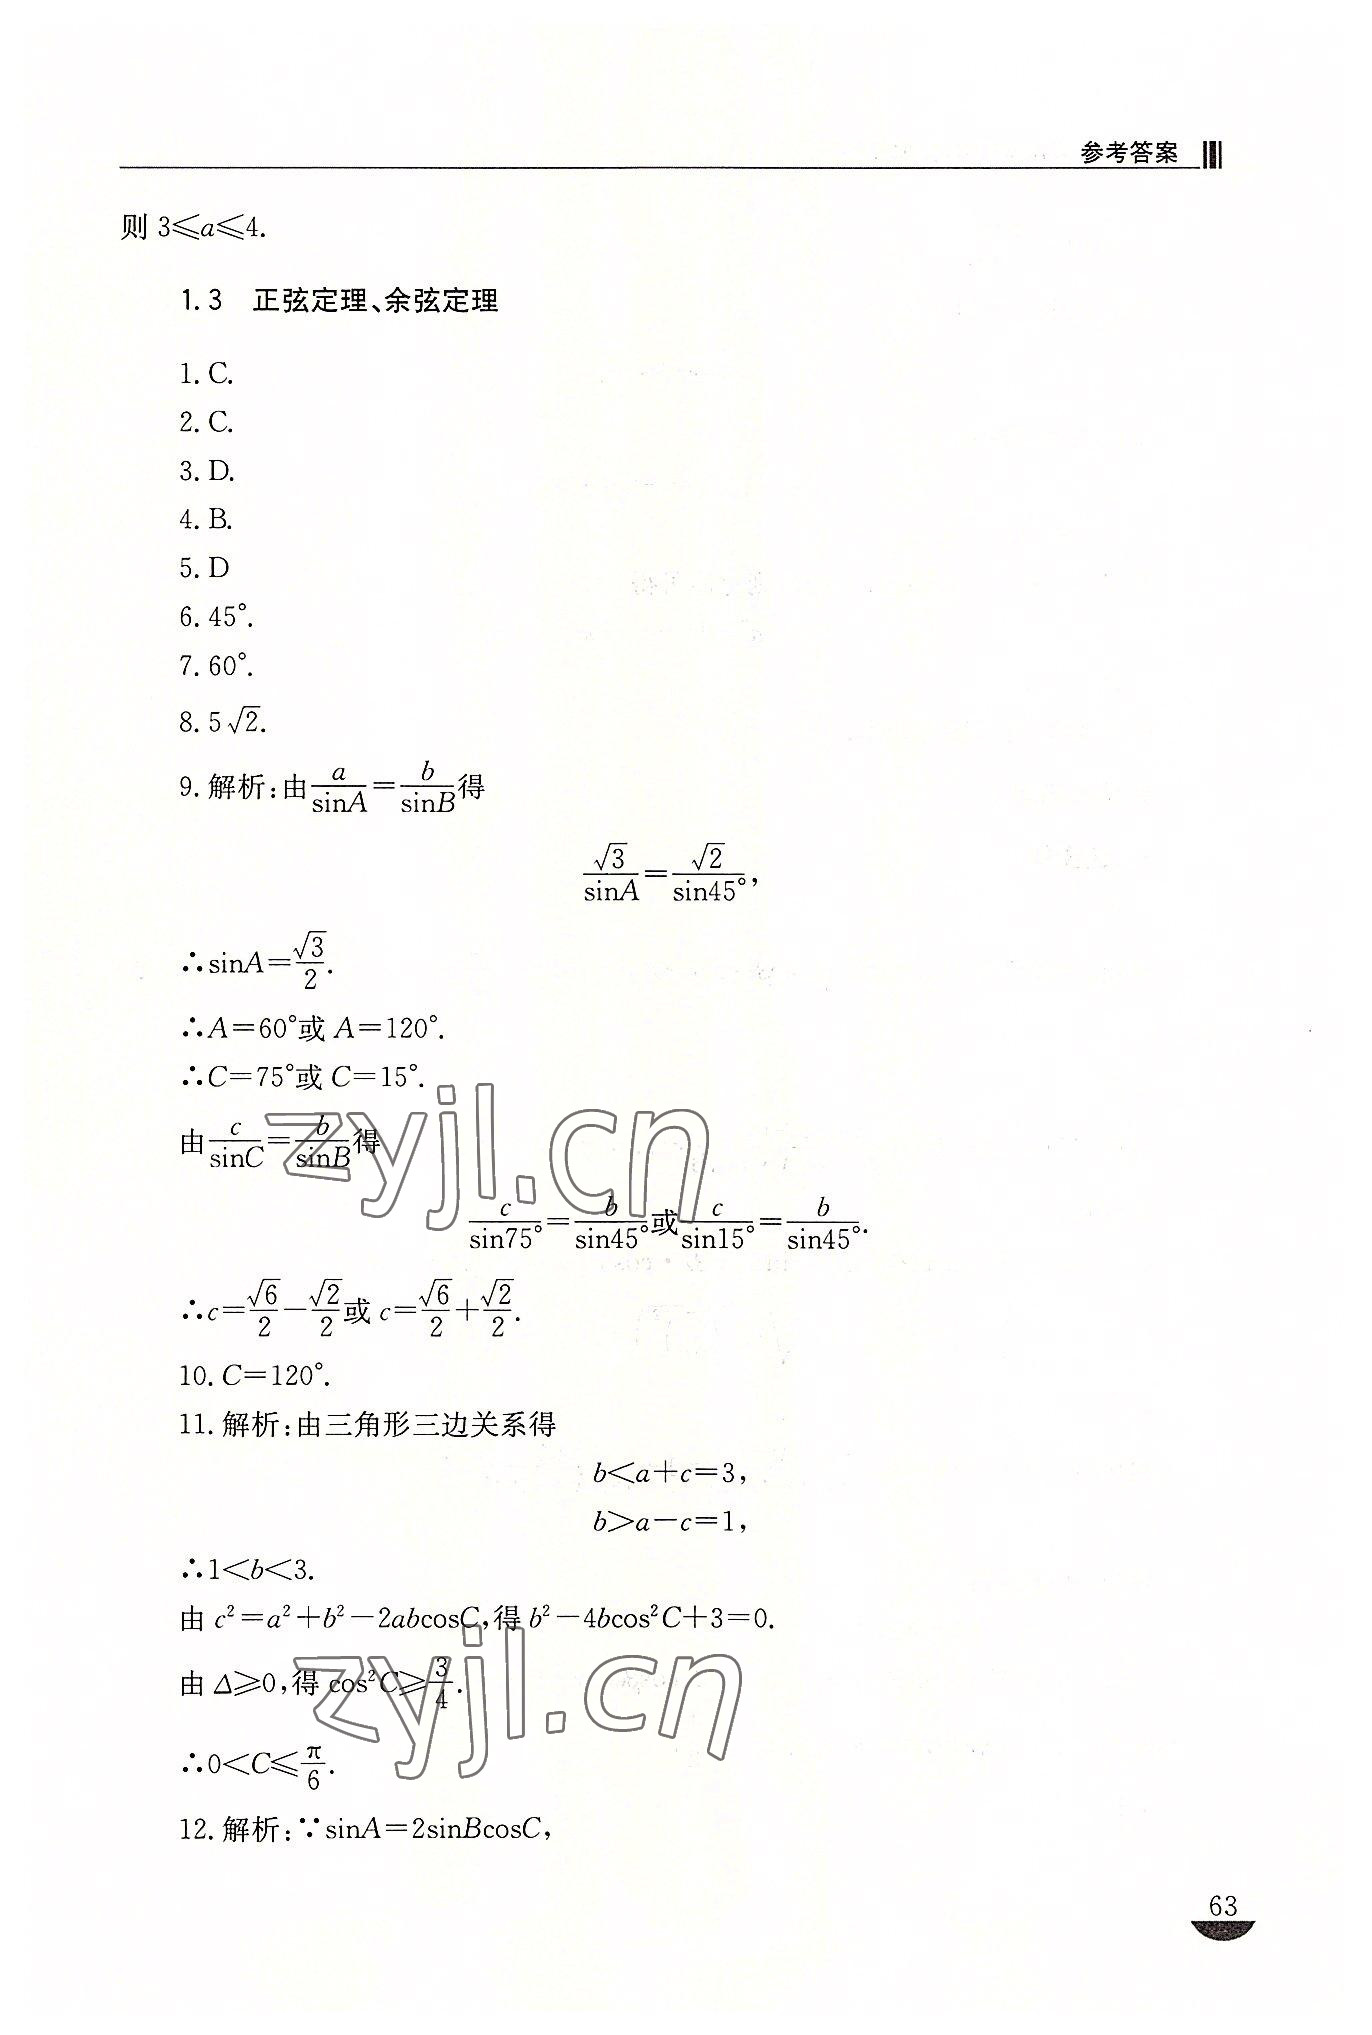 参考答案
则 3≤a≤4.
1.3 正弦定理、余弦定理
1. C.
2. C.
3. D.
4. B.
5. D
6. 45°.
7. 60°.
8. 5√2.
9. 解析:由a/sinA=b/sinB得
√3/sinA=√2/sin45°,
∴sinA=√3/2.
∴A=60°或 A=120°.
∴C=75°或 C=15°.
由c/sinC=b/sinB得
c/sin75°=b/sin45°或c/sin15°=b/sin45°.
∴c=√6/2-√2/2或 c=√6/2+√2/2.
10. C=120°.
11. 解析:由三角形三边关系得
b<a+c=3,
b>a-c=1,
∴1<b<3.
由 c²=a²+b²-2abcosC,得 b²-4bcos²C+3=0.
由 Δ≥0,得 cos²C≥3/4.
∴0<C≤π/6.
12. 解析:∵sinA=2sinBcosC,
63
zyjl.cn
zyjl.cn